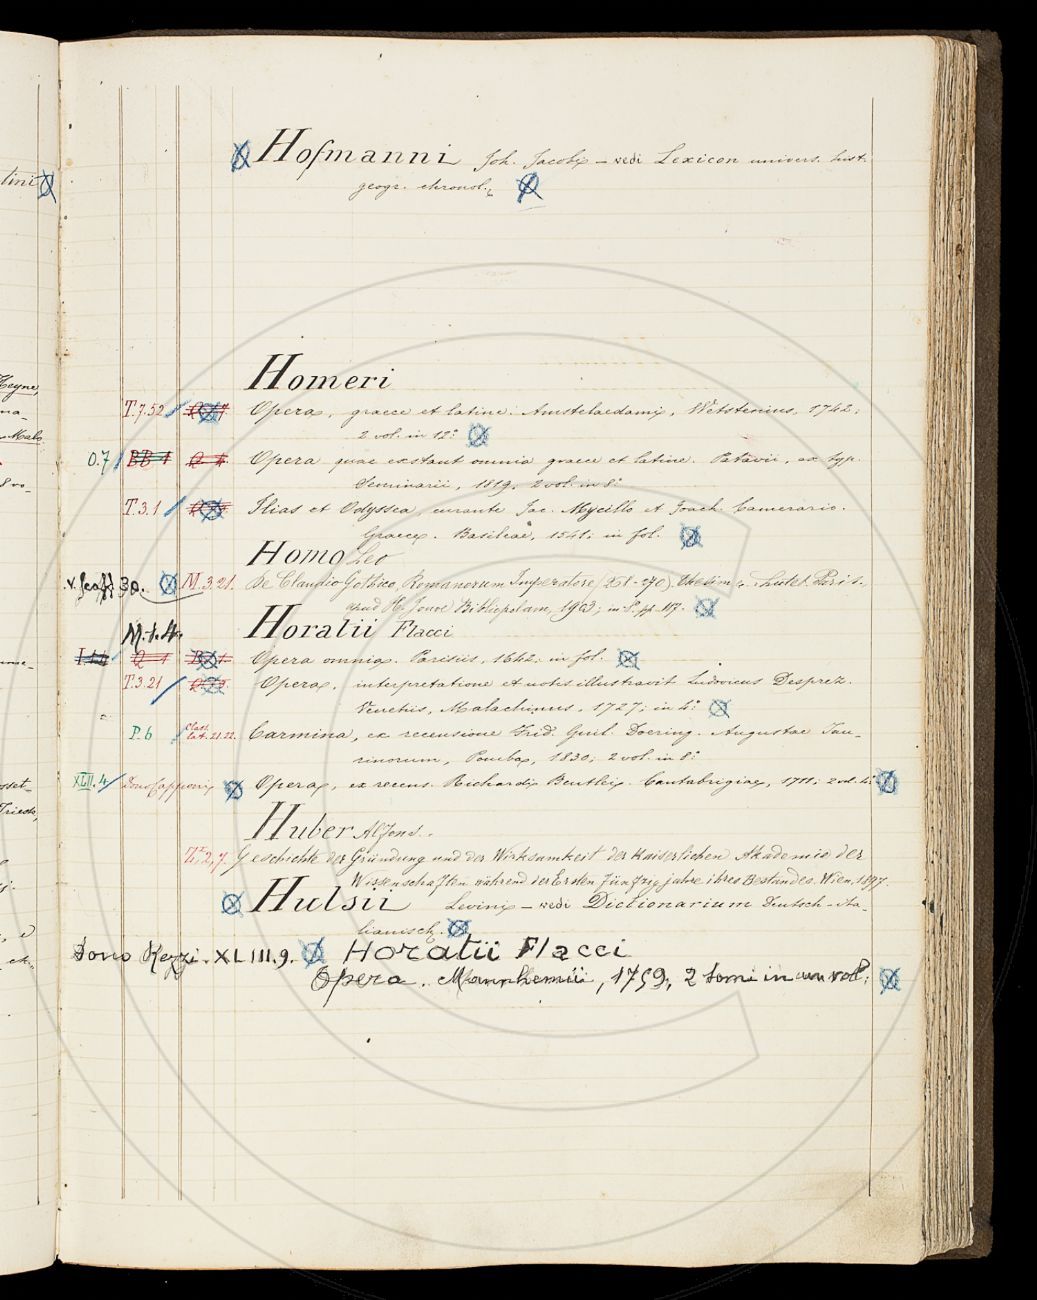 Hofmanni Joh. Jacobi – vedi Lexicon univers. hist.
geogr. chronol.
Homeri
T.7.52 Opera, graece et latine. Amstelaedami, Wetstenius, 1742;
2 vol. in 12.°
O.7 BB 1 Opera quae exstant omnia graece et latine. Patavii, ex typ.
Seminarii, 1819, 2 vol. in 8.°
T.3.1 Ilias et Odyssea, curante Jac. Mycillo et Joach. Camerario.
Graece. Basileae, 1541; in fol.
Homo Leo
v. Scaff 30. M.3.21. De Claudio Gothico, Romanorum Imperatore Paris.
apud H. Jouve Bibliopolam, 1903; in 8. pp. 117.
Horatii Flacci
M.t.4.
Opera omnia. Parisiis, 1642; in fol.
T.3.21 Opera, interpretatione et notis illustravit Ludovicus Desprez.
Venetiis, Malachinus, 1727; in 4.°
P.6 Class. lat. 21.22. Carmina, ex recensione Frid. Guil. Doering. Augustae Tau-
rinorum, Pomba, 1830; 2 vol. in 8.°
XLII.4 Dono Capponi Opera, ex recens. Richardi Bentlei. Cantabrigiae, 1711; 2 vol. 4.°
Huber Alfons.
2,7. Geschichte der Gründung und der Wirksamkeit der Kaiserlichen Akademie der
Wissenschaften während der Ersten Fünfzig jahre ihres Bestandes. Wien, 1897.
Hulsii Levini – vedi Dictionarium Deutsch-ita-
lianisch.
Dono Rezzi. XLIII.9. Horatii Flacci
Opera. Mannhemii, 1759; 2 tomi in un vol.;